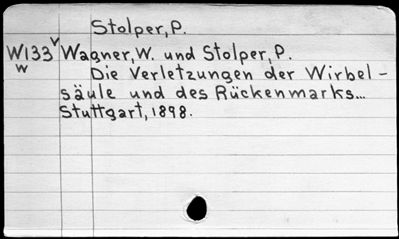 Stolper, P.
W133 Wagner, W. und Stolper, P.
w Die Verletzungen der Wirbel-
säule und des Rückenmarks...
Stuttgart, 1898.